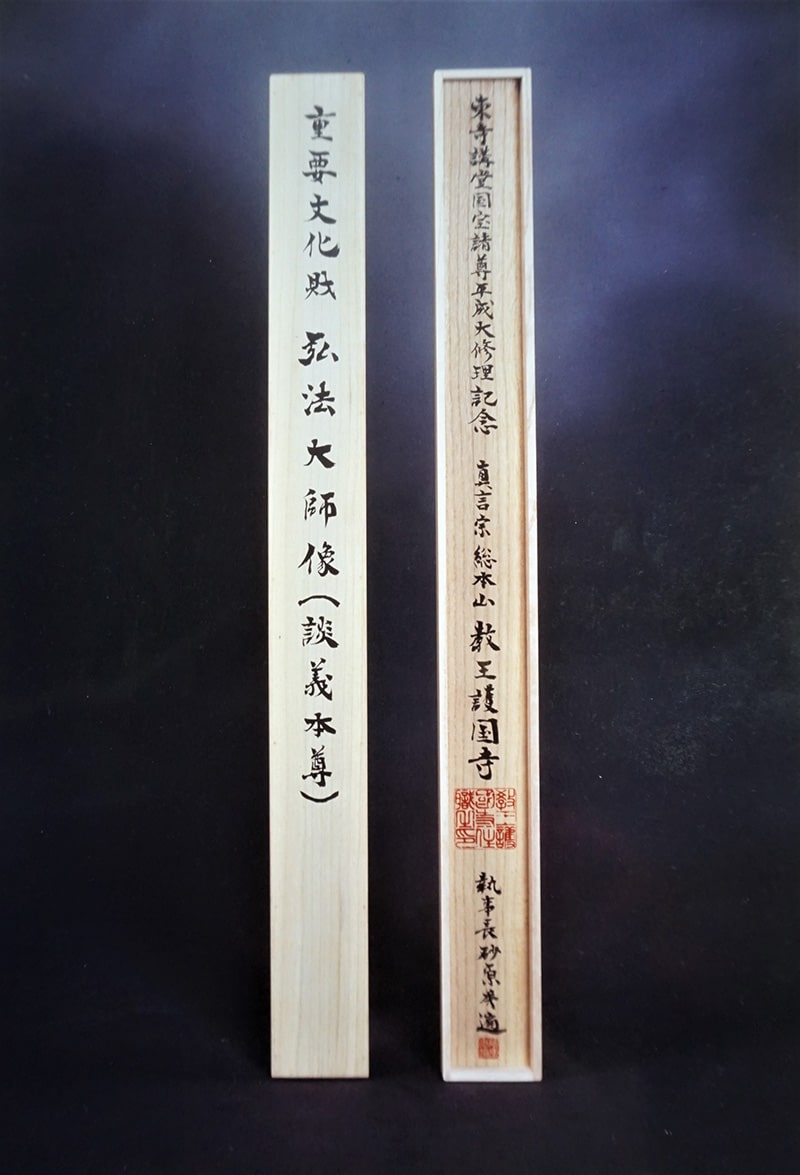 重要文化財 弘法大師像(談義本尊)
東寺講堂国宝諸尊平成大修理記念 真言宗総本山 教王護国寺
教王護
國寺住
職之印
執事長砂原秀遍